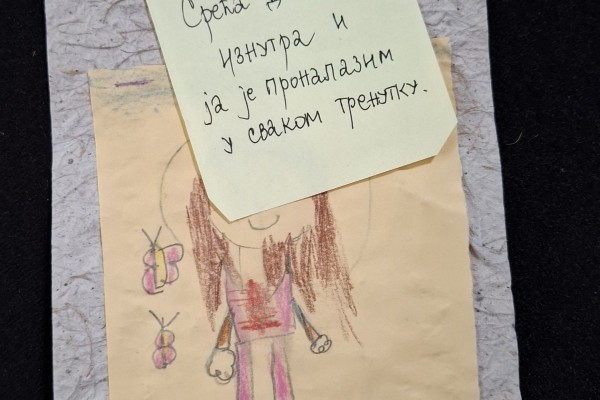 Срећа
изнутра и
ја је проналазим
у сваком тренутку.